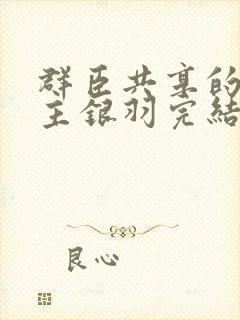 群臣共享的
主銀羽完結
良心